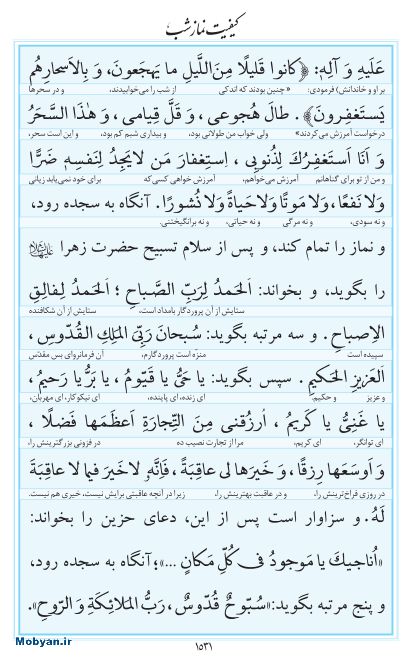 کیفیت نماز شب
عَلَیهِ وَ آلِهِ: ﴿کانوا قَلیلًا مِنَ اللَّیلِ ما یَهجَعونَ، وَ بِالاَسحارِ هُم
بر او و خاندانش) فرمودی: «چنین بودند که اندکی از شب را می‌خوابیدند، و در سحرها
یَستَغفِرونَ﴾. طالَ هُجوعی، وَ قَلَّ قِیامی، وَ هٰذَا السَّحَرُ
درخواست آمرزش می‌کردند» ولی خواب من طولانی بود، و بیداری شبم کم بود، و این است سحر،
وَ اَنَا اَستَغفِرُكَ لِذُنوبی، اِستِغفارَ مَن لایَجِدُ لِنَفسِهِ ضَرًّا
و من از تو برای گناهانم آمرزش می‌خواهم، آمرزش خواهی کسی‌که برای خود نمی‌یابد زیانی
وَلا نَفعًا، وَلا مَوتًا وَلا حَیاةً وَلا نُشورًا. آنگاه به سجده رود،
و نه سودی، و نه مرگی و نه حیاتی، و نه برانگیختنی.
و نماز را تمام کند، و پس از سلام تسبیح حضرت زهرا علیها السلام
را بگوید، و بخواند: اَلحَمدُ لِرَبِّ الصَّباحِ؛ اَلحَمدُ لِفالِقِ
ستایش از آن پروردگار بامداد است، ستایش از آن شکافنده
الاِصباحِ. و سه مرتبه بگوید: سُبحانَ رَبِّیَ المَلِكِ القُدّوسِ،
سپیده است منزه است پروردگارم، آن فرمانروای بس مقدّس
العَزیزِ الحَکیمِ. سپس بگوید: یا حَیُّ یا قَیّومُ، یا بَرُّ یا رَحیمُ،
و عزیز و حکیم. ای زنده، ای پاینده، ای نیکوکار، ای مهربان،
یا غَنِیُّ یا کَریمُ، اُرزُقنی مِنَ التِّجارَةِ اَعظَمَها فَضلًا،
ای توانگر، ای کریم، مرا از تجارت نصیب ده در فزونی بزرگترینش را،
وَ اَوسَعَها رِزقًا، وَ خَیرَها لی عاقِبَةً، فَاِنَّهُ لا خَیرَ فیما لا عاقِبَةَ
در روزی فراخ‌ترینش را، و در عاقبت بهترینش را، زیرا در آنچه عاقبتی برایش نیست، خیری هم نیست.
لَهُ. و سزاوار است پس از این، دعای حزین را بخواند:
«اُناجیكَ یا مَوجودُ فی کُلِّ مَکانٍ ...»؛ آنگاه به سجده رود،
و پنج مرتبه بگوید: «سُبّوحٌ قُدّوسٌ، رَبُّ المَلائِکَةِ وَ الرّوحِ».
Mobyan.ir
۱۵۳۱